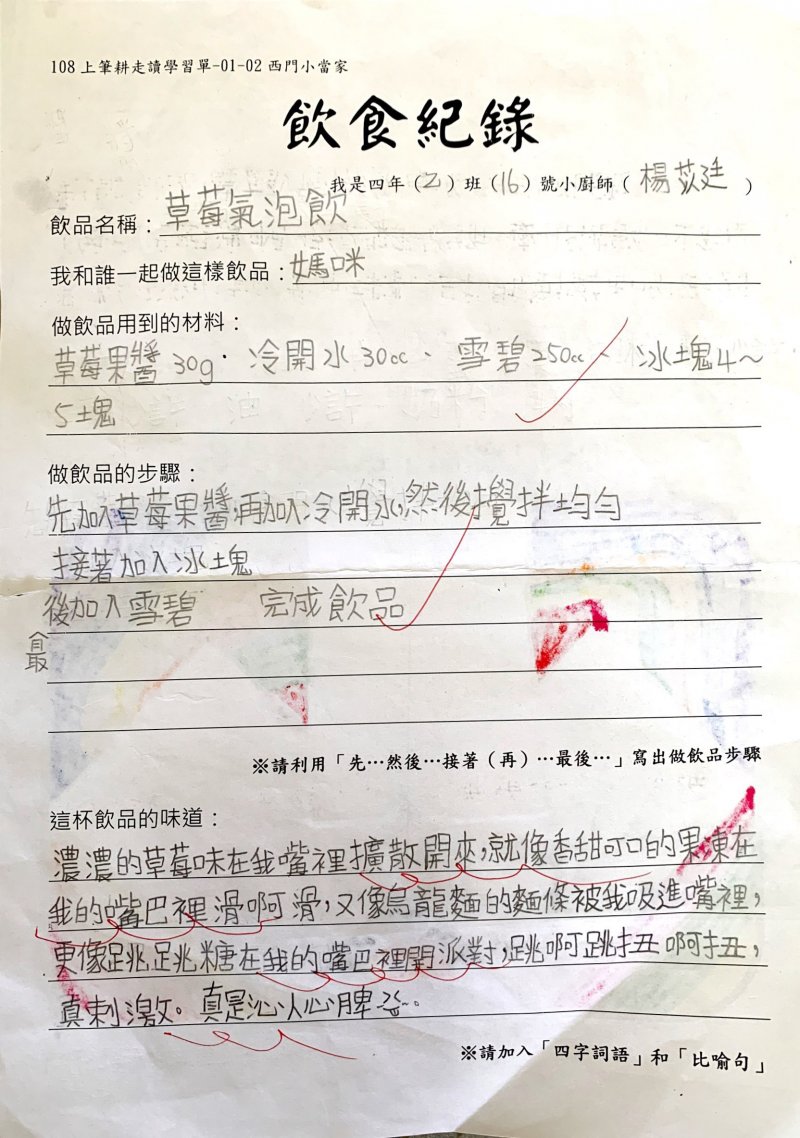 108上筆耕走讀學習單-01-02西門小當家
飲食紀錄
我是四年(乙)班(16)號小廚師(楊苡廷)
飲品名稱：草莓氣泡飲
我和誰一起做這樣飲品：媽咪
做飲品用到的材料：
草莓果醬30g、冷開水30cc、雪碧250cc、冰塊4～
5塊
做飲品的步驟：
先加入草莓果醬,再加入冷開水,然後攪拌均勻
接著加入冰塊
最後加入雪碧 完成飲品
※請利用「先…然後…接著（再）…最後…」寫出做飲品步驟
這杯飲品的味道：
濃濃的草莓味在我嘴裡擴散開來,就像香甜可口的果凍在
我的嘴巴裡滑啊滑,又像烏龍麵的麵條被我吸進嘴裡,
更像跳跳糖在我的嘴巴裡開派對,跳啊跳扭啊扭,
真刺激。真是沁人心脾
※請加入「四字詞語」和「比喻句」